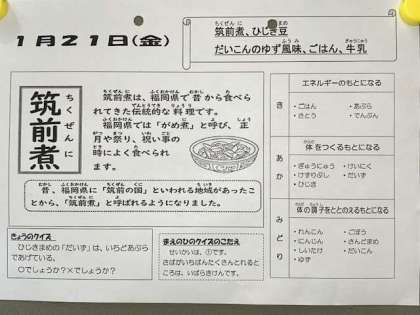 1月21日(金)
筑前煮、ひじき豆
だいこんのゆず風味、ごはん、牛乳
筑前煮
ちくぜんに
筑前煮は、福岡県で昔から食べら
れてきた伝統的な料理です。
福岡県では「がめ煮」と呼び、正
月や祭り、祝い事の
時によく食べられ
ます。
昔、福岡県に「筑前の国」といわれる地域があったこ
とから、「筑前煮」と呼ばれるようになりました。
きょうのクイズ
ひじきまめの「だいず」は、いちどあぶら
であげている。
○でしょうか?×でしょうか?
まえのひのクイズのこたえ
せいかいは、①です。
さばがいちばんたくさんとれると
ころは、いばらきけんです。
エネルギーのもとになる
き
・ごはん ・あぶら
・さとう ・でんぷん
体をつくるもとになる
あか
・ぎゅうにゅう ・けいにく
・けずりぶし ・だいず
・ひじき
体の調子をととのえるもとになる
みどり
・れんこん ・ごぼう
・にんじん ・さんどまめ
・しいたけ ・だいこん
・ゆず